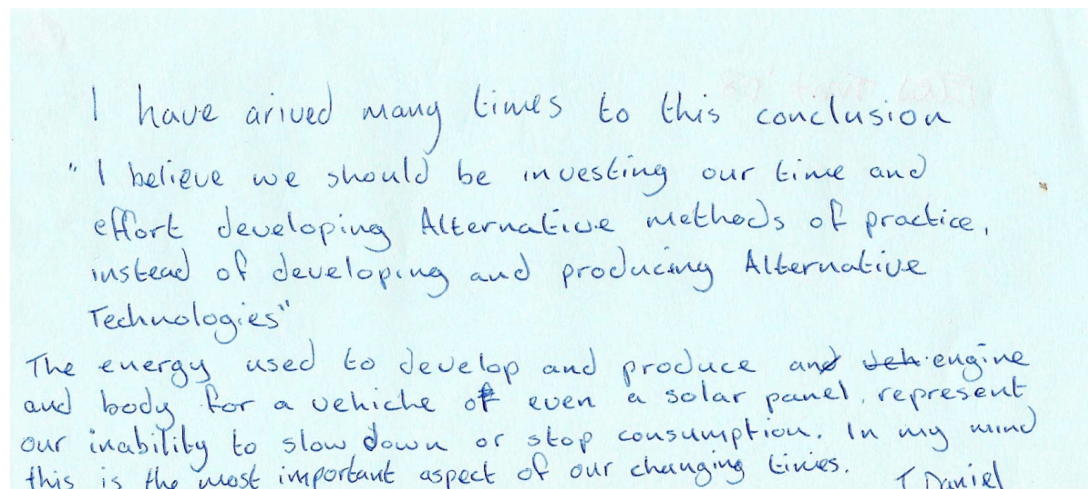 I have arived many times to this conclusion
"I believe we should be investing our time and
effort developing Alternative methods of practice,
instead of developing and producing Alternative
Technologies"
The energy used to develop and produce an engine
and body for a vehiche or even a solar panel, represent
our inability to slow down or stop consumption. In my mind
this is the most important aspect of our changing times.
T Daniel